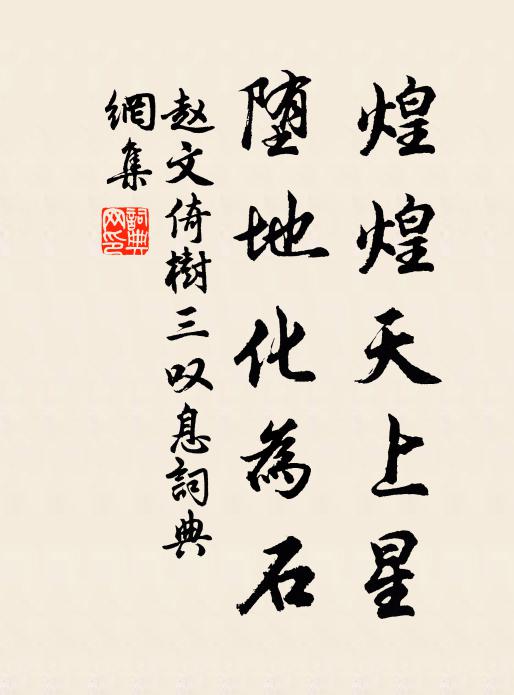 煌煌天上星
堕地化為石
赵文倚樹三叹息詞典
網集
詞典
网印